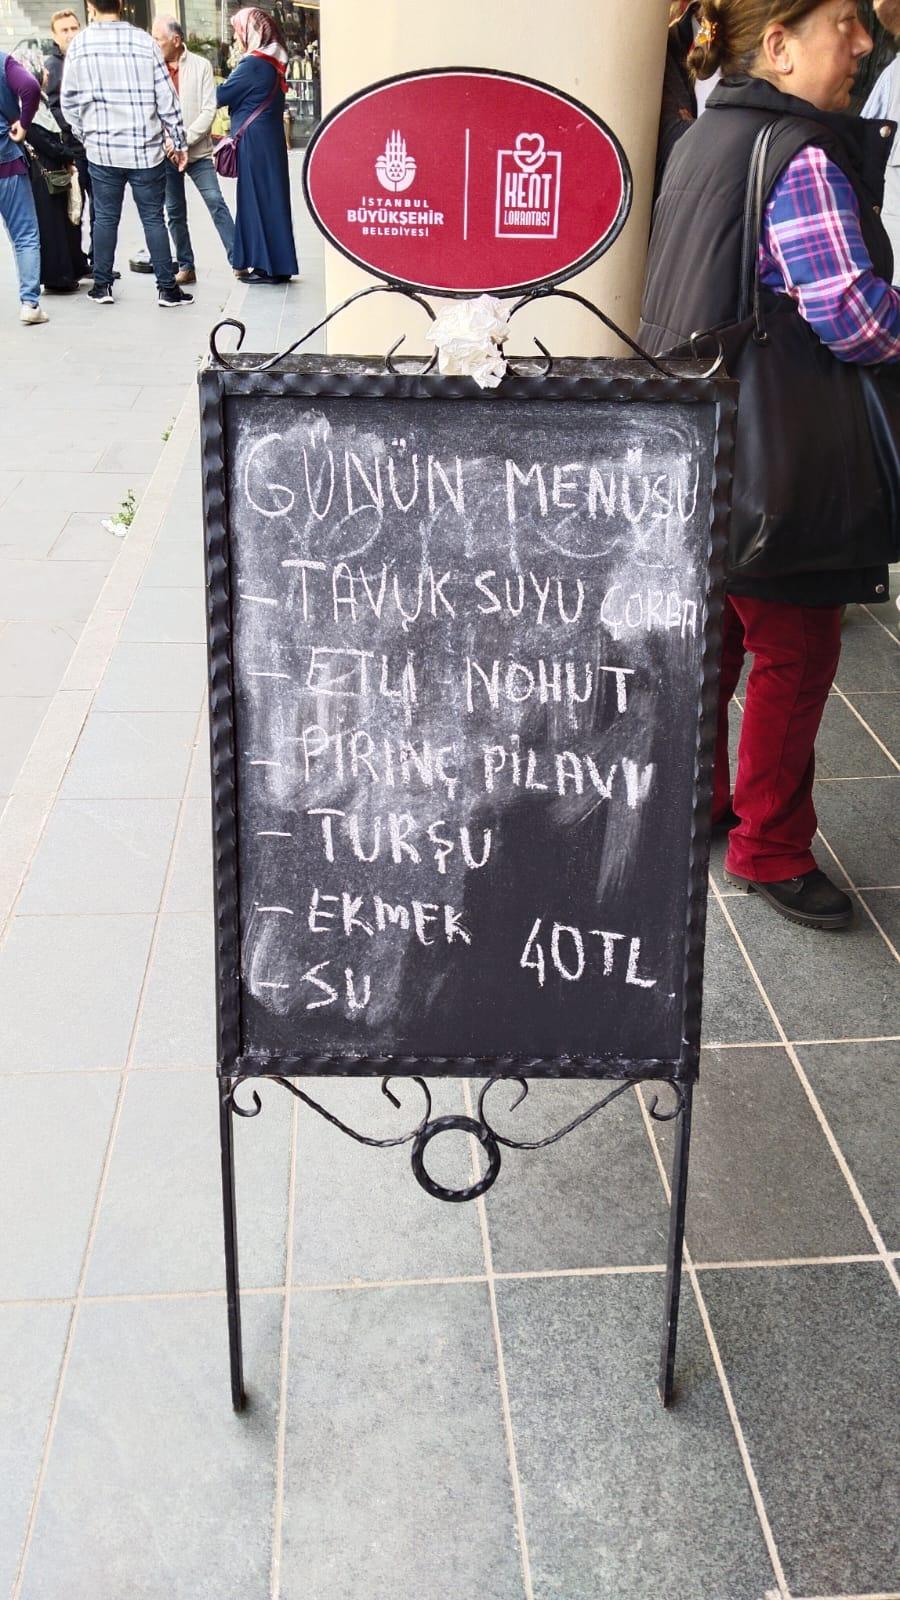 İSTANBUL
BÜYÜKŞEHİR
BELEDİYESİ
KENT
LOKANTASI
GÜNÜN MENÜSÜ
- TAVUK SUYU ÇORBA
- ETLİ NOHUT
- PİRİNÇ PİLAVI
- TURŞU
- EKMEK
- SU
40TL